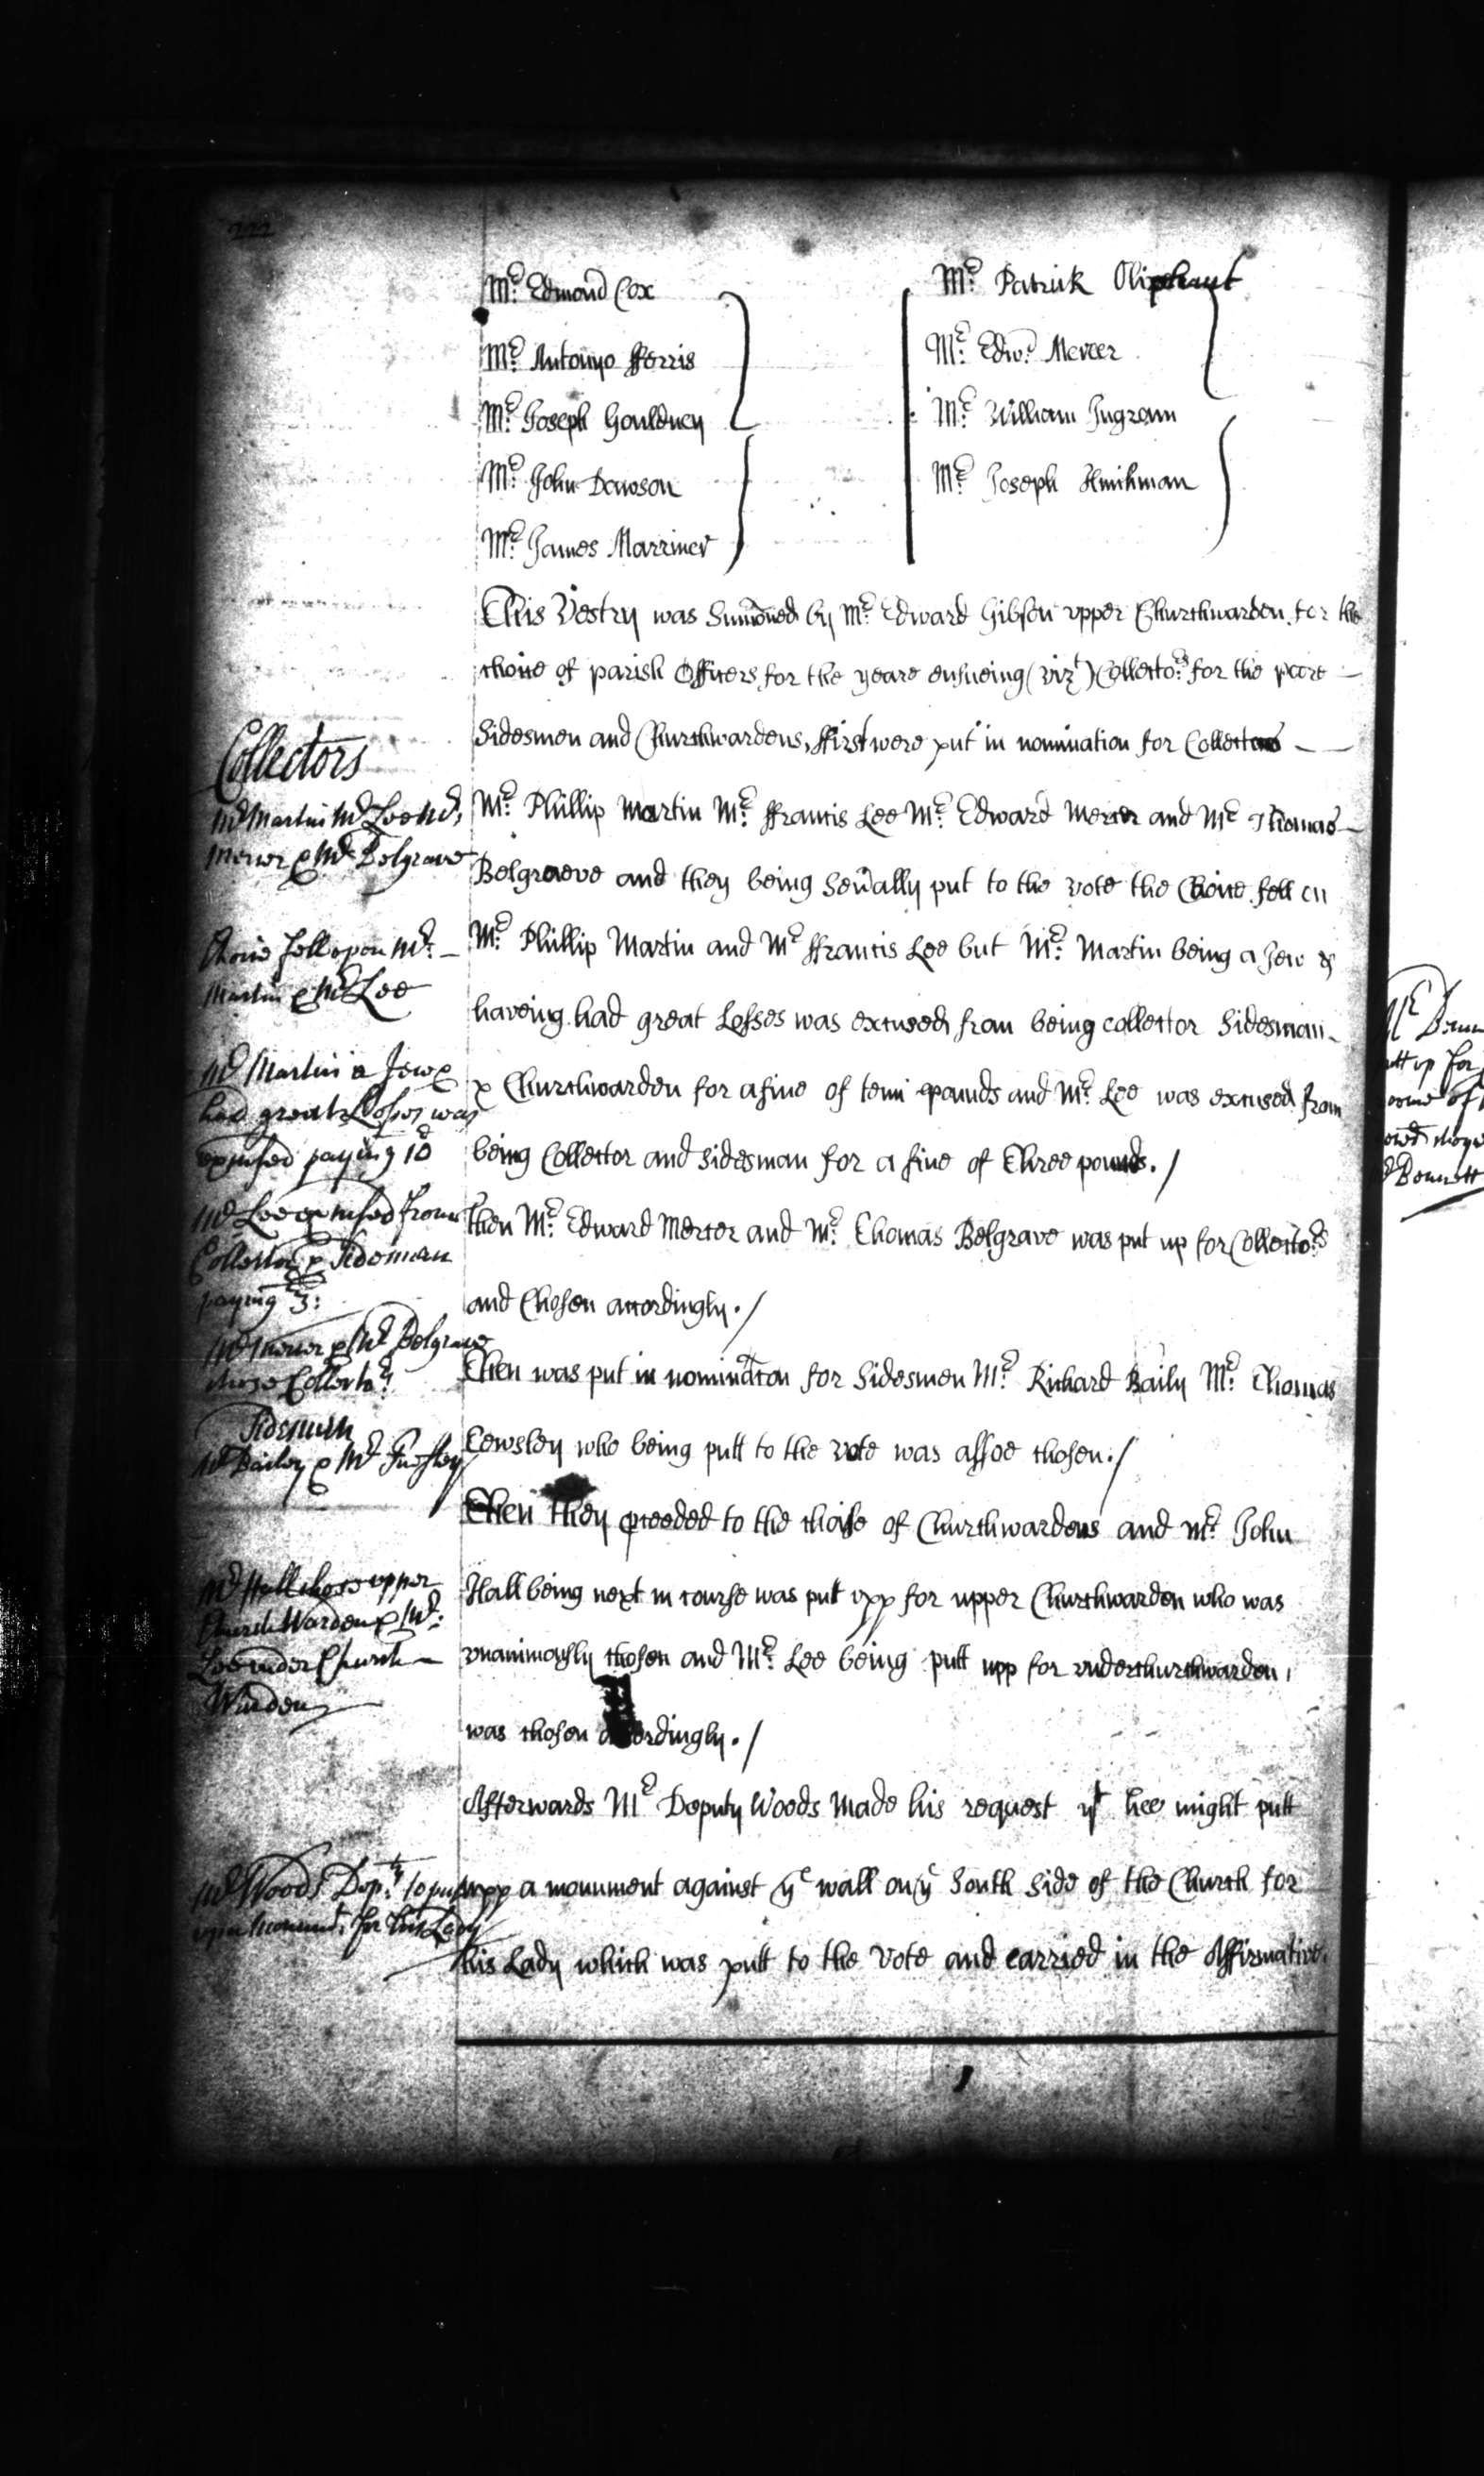 222
Mr. Edmond Cox
Mr. Antonyo fferris
Mr. Joseph Gouldney
Mr. John Dawson
Mr. James Marriner
Mr. Patrick Oliphant
Mr. Edwd. Mercer
Mr. William Ingram
Mr. Joseph Hinchman
This Vestry was Sumoned by Mr. Edward Gibson upper Churchwarden for the
choice of parish Officers for the yeare ensueing (vizt) Collectors. for the poore
Sidesmen and Churchwardens, ffirst were put in nomination for Collectors
Collectors
Mr Martin Mr Lee Mr.
Mercer & Mr Belgrave
Mr. Phillip Martin Mr. ffrancis Lee Mr. Edward Mercer and Mr Thomas
Belgraeve and they being Seually put to the vote the Choice fell on
Choice fell upon Mr.
Martin & Mr Lee
Mr. Phillip Martin and Mr ffrancis Lee but Mr. Martin being a Jew &
haveing had great Losses was excused from being collector Sidesman
Mr Martin a Jew &
had great Losses was
excused paying 10
& Churchwarden for a fine of tenn pounds and Mr. Lee was excused from
being Collector and Sidesman for a fine of Three pounds./
Mr Lee excused from
Collector & Sidesman
paying 3:
then Mr. Edward Mercer and Mr. Thomas Belgrave was put up for Collectors
and Chosen accordingly./
Mr Mercer & Mr Belgrave
chose Collectrs.
Then was put in nominacon for Sidesmen Mr. Richard Baily Mr. Thomas
Sidesmen
Mr Bailey & Mr
Tewsley who being putt to the vote was allsoe chosen./
Then they pceeded to the choise of Churchwardens and Mr. John
Hall being next in course was put vpp for upper Churchwarden who was
Mr Hall chose upper
Church Warden & Mr.
Lee under Church
Warden
vnanimously chosen and Mr. Lee being putt upp for underchurchwarden,
was chosen accordingly./
Afterwards Mr Deputy Woods made his request yt hee might putt
Mr Woods Depty. to put
up a monumt. for his Lady
upp a monument against ye wall on ye South Side of the Church for
his Lady which was putt to the vote and carried in the Affirmative.